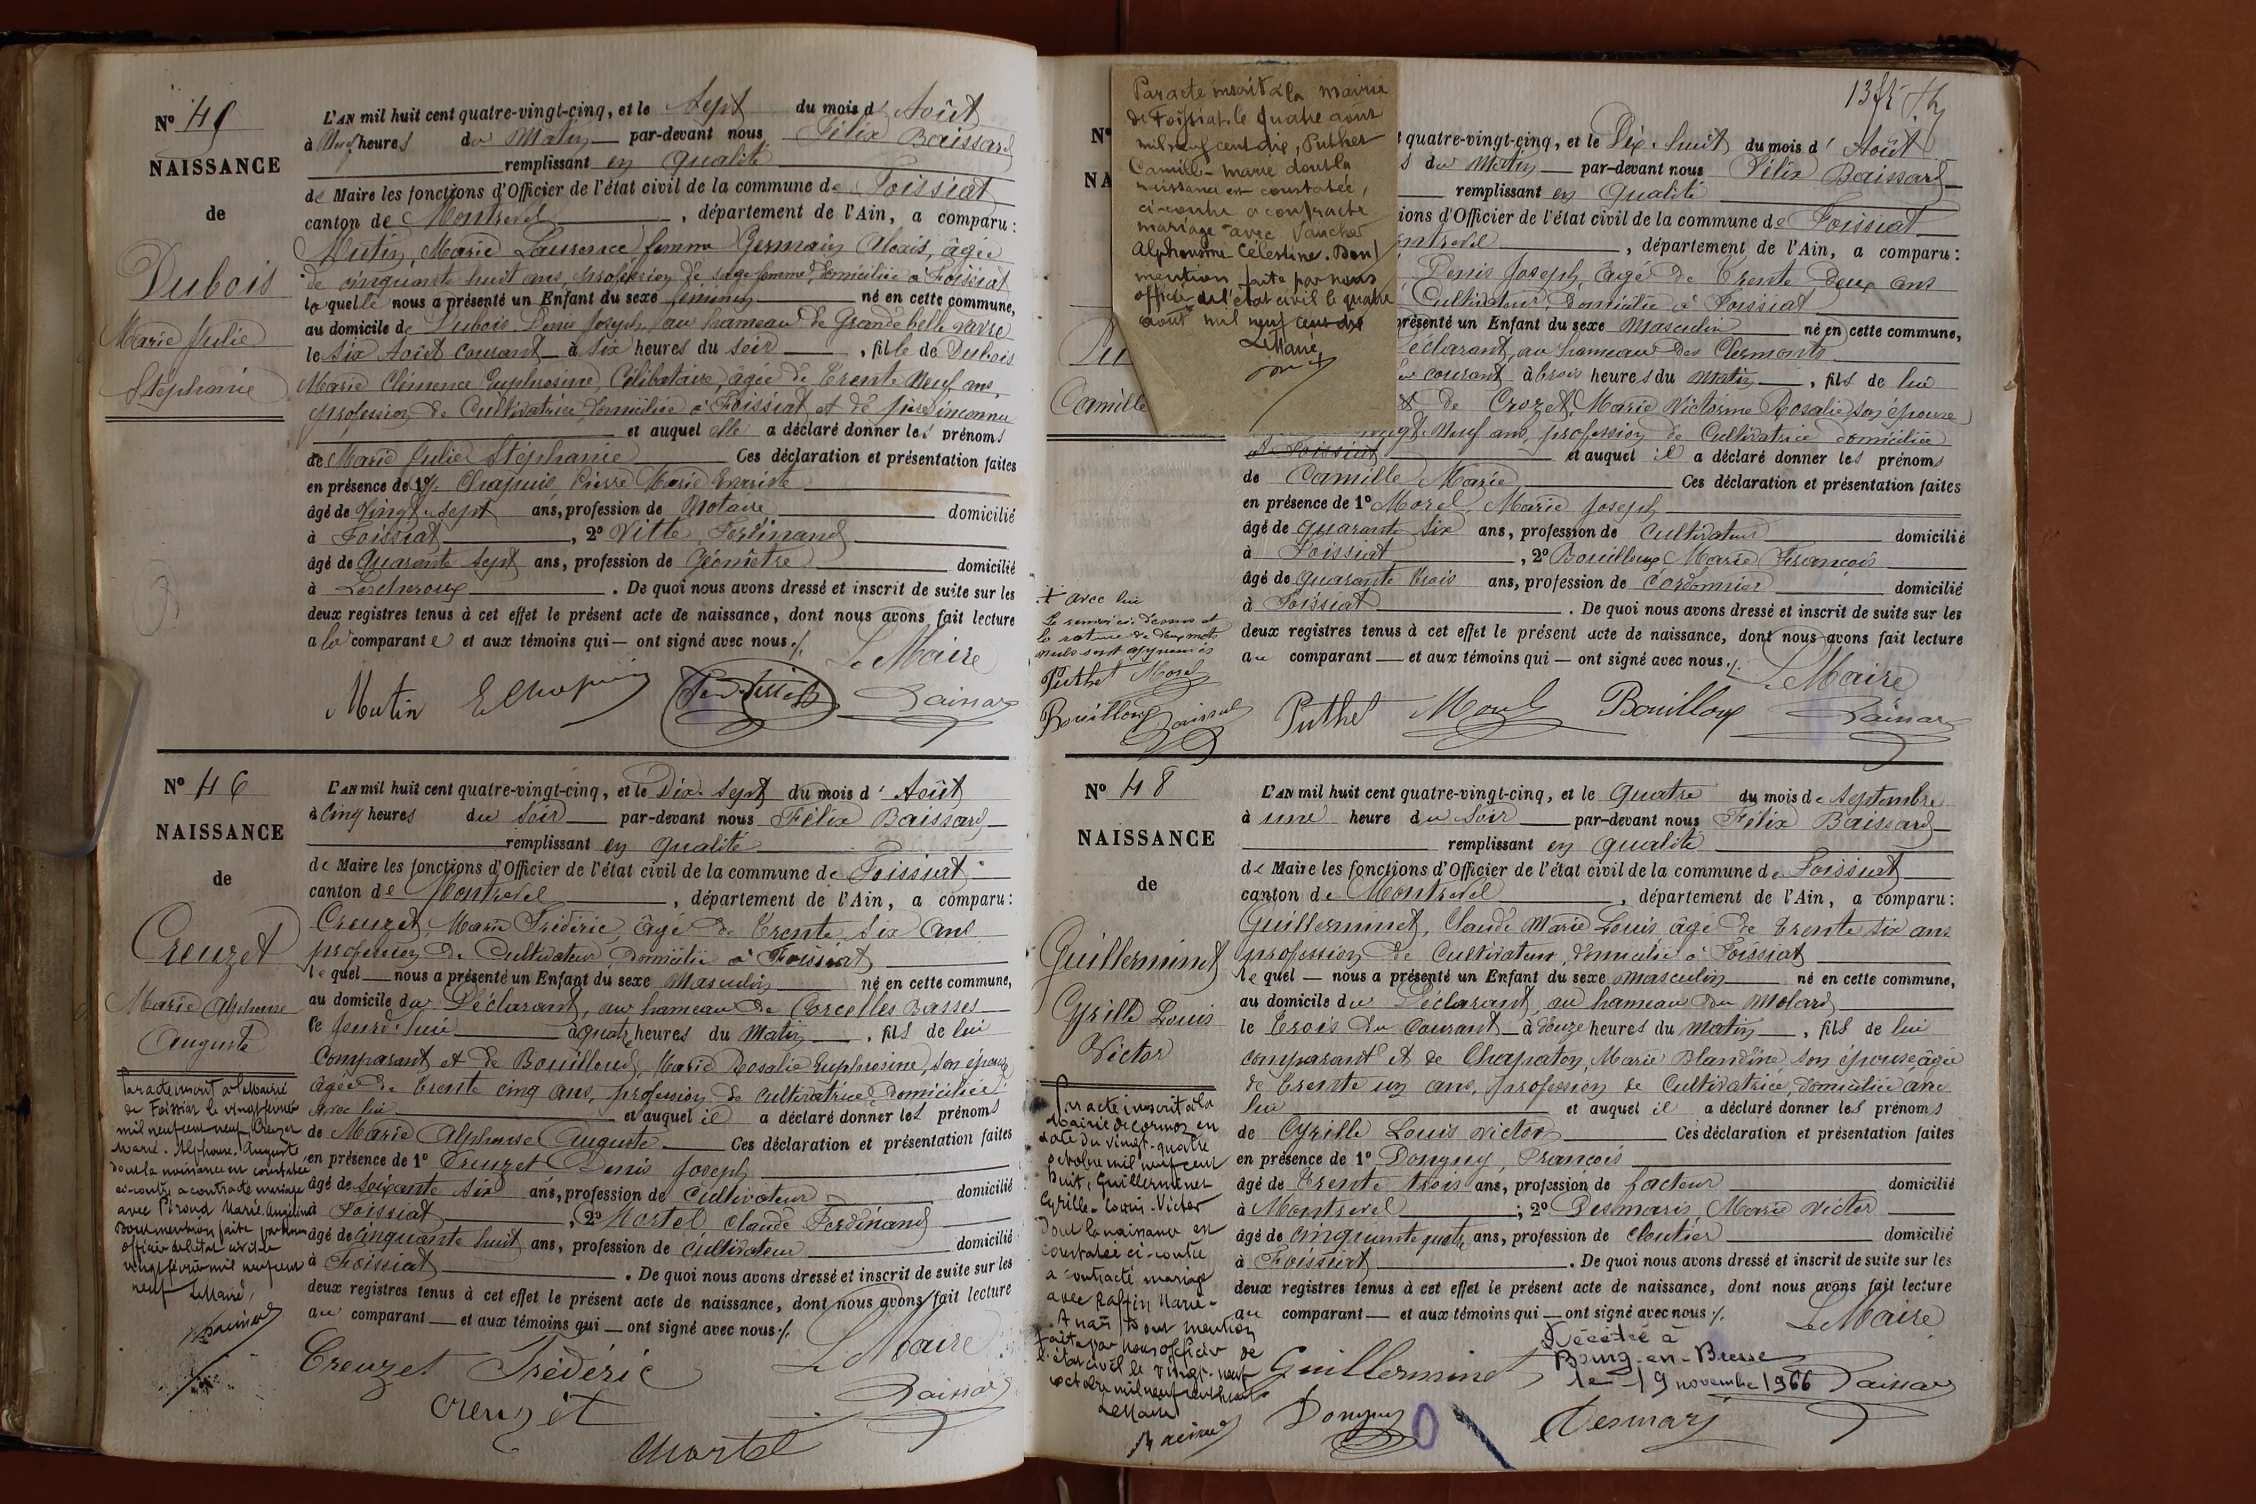 Nº 45
NAISSANCE
de
Dubois
Marie Julie
Stéphanie
L'AN mil huit cent quatre-vingt-cinq, et le Sept du mois d' Août
à Neuf heures du Matin par-devant nous Félix Baissard
remplissant en qualité
de Maire les fonctions d'Officier de l'état civil de la commune de Foissiat
canton de Montrevel, département de l'Ain, a comparu :
Mutin, Marie Laurence femme Germain Alexis, âgée
de cinquante huit ans, profession de sage femme, domiciliée à Foissiat
laquelle nous a présenté un Enfant du sexe féminin né en cette commune,
au domicile de Dubois Denis Joseph, au hameau de Grande belle vavre
le six Août courant à six heures du soir, fille de Dubois
Marie Clémence Euphrosine, Célibataire, âgée de trente Neuf ans,
profession de Cultivatrice domiciliée à Foissiat et de père inconnu
et auquel elle a déclaré donner les prénoms
de Marie Julie Stéphanie Ces déclaration et présentation faites
en présence de 1º Chapuis Pierre Marie
âgé de Vingt-Sept ans, profession de Notaire domicilié
à Foissiat, 2º Vitte, Ferdinand
âgé de Quarante Sept ans, profession de Géomètre domicilié
à Lescheroux. De quoi nous avons dressé et inscrit de suite sur les
deux registres tenus à cet effet le présent acte de naissance, dont nous avons fait lecture
a la comparante et aux témoins qui — ont signé avec nous ./.
Le Maire
Mutin E Chapuis
Baissard
Nº 46
NAISSANCE
de
Creuzet
Marie Alphonse
Auguste
Par acte inscrit à la Mairie
de Foissiat le vingt février
mil neuf cent neuf, Creuzet
Marie-Alphonse-Auguste
dont la naissance est constatée
ci-contre a contracté mariage
avec Péroud Marie Angélina
Dont mention faite par nous
officier de l'état civil le
vingt février mil neuf cent
neuf Le Maire,
L'AN mil huit cent quatre-vingt-cinq, et le Dix-Sept du mois d' Août
à Cinq heures du Soir par-devant nous Félix Baissard
remplissant en qualité
de Maire les fonctions d'Officier de l'état civil de la commune de Foissiat
canton de Montrevel, département de l'Ain, a comparu :
Creuzet, Marie Frédéric, âgé de Trente Six ans
profession de Cultivateur, Domicilié à Foissiat
lequel — nous a présenté un Enfant du sexe Masculin né en cette commune,
au domicile du Déclarant, au hameau de Corcelles Basses
le jourd'hui à quatre heures du Matin, fils de lui
Comparant et de Bouilloud, Marie Rosalie Euphrosine, son épouse
âgée de trente cinq ans, profession de cultivatrice Domiciliée
avec lui et auquel il a déclaré donner les prénoms
de Marie Alphonse Auguste Ces déclaration et présentation faites
en présence de 1º Creuzet Denis Joseph
âgé de Soixante Six ans, profession de Cultivateur domicilié
à Foissiat, 2º Mortel Claude Ferdinand
âgé de Cinquante huit ans, profession de Cultivateur domicilié
à Foissiat. De quoi nous avons dressé et inscrit de suite sur les
deux registres tenus à cet effet le présent acte de naissance, dont nous avons fait lecture
au comparant — et aux témoins qui — ont signé avec nous ./.
Le Maire
Creuzet Frédéric
Baissard
Creuzet
Mortel
Par acte inscrit à la mairie
de Foissiat le quatre août
mil neuf cent dix, Puthet
Camille-Marie dont la
naissance est constatée,
ci-contre a contracté
mariage avec Vaucher
Alphonsine Célestine. Dont
mention faite par nous
officier de l'état civil le quatre
août mil neuf cent dix
Le Maire,
Nº
NA
Pu
Camille
quatre-vingt-cinq, et le Dix-huit du mois d' Août
s du Matin par-devant nous Félix Baissard
remplissant en qualité
ions d'Officier de l'état civil de la commune de Foissiat
ntrevel, département de l'Ain, a comparu :
Denis Joseph, âgé de Trente Deux ans
Cultivateur, Domicilié à Foissiat
présenté un Enfant du sexe Masculin né en cette commune,
Déclarant, au hameau des Clermonts
courant à trois heures du Matin, fils de lui
et de Crozet, Marie Victorine Rosalie, son épouse
vingt-Neuf ans, profession de Cultivatrice domiciliée
à Foissiat et auquel il a déclaré donner les prénoms
de Camille Marie Ces déclaration et présentation faites
en présence de 1º Morel, Marie Joseph
âgé de quarante Six ans, profession de Cultivateur domicilié
à Foissiat, 2º Bouilloux Marie François
âgé de quarante trois ans, profession de Cordonnier domicilié
à Foissiat. De quoi nous avons dressé et inscrit de suite sur les
deux registres tenus à cet effet le présent acte de naissance, dont nous avons fait lecture
au comparant — et aux témoins qui — ont signé avec nous ./.
+ avec lui
Le renvoi ci-dessus et
la rature de deux mots
nuls sont approuvés
Puthet Morel
Bouilloux Baissard
Le Maire
Puthet Morel Bouilloux Baissard
Nº 48
NAISSANCE
de
Guillerminet
Cyrille Louis
Victor
Par acte inscrit à la
Mairie de Cormoz en
date du vingt-quatre
octobre mil neuf cent
huit, Guillerminet
Cyrille-Louis-Victor
dont la naissance est
constatée ci-contre
a contracté mariage
avec Raffin Marie-
Anaïs Dont mention
faite par nous officier de
l'état civil le vingt-neuf
octobre mil neuf cent huit
Le Maire
L'AN mil huit cent quatre-vingt-cinq, et le Quatre du mois de Septembre
à une heure du Soir par-devant nous Félix Baissard
remplissant en qualité
de Maire les fonctions d'Officier de l'état civil de la commune de Foissiat
canton de Montrevel, département de l'Ain, a comparu :
Guillerminet, Claude Marie Louis âgé de Trente six ans
profession de Cultivateur, domicilié à Foissiat
lequel — nous a présenté un Enfant du sexe Masculin né en cette commune,
au domicile du Déclarant, au hameau du Molard
le Trois du Courant à douze heures du Matin, fils de lui
comparant et de Chapaton, Marie Blandine, son épouse âgée
de Trente un ans, profession de Cultivatrice, domiciliée avec
lui et auquel il a déclaré donner les prénoms
de Cyrille Louis Victor Ces déclaration et présentation faites
en présence de 1º Donguy, François
âgé de Trente trois ans, profession de facteur domicilié
à Montrevel ; 2º Desmaris, Marie Victor
âgé de Cinquante quatre ans, profession de Cloutier domicilié
à Foissiat. De quoi nous avons dressé et inscrit de suite sur les
deux registres tenus à cet effet le présent acte de naissance, dont nous avons fait lecture
au comparant — et aux témoins qui — ont signé avec nous ./.
Le Maire
Décédé à
Bourg-en-Bresse
le 19 novembre 1966
Guillerminet Baissard
Donguy Desmaris